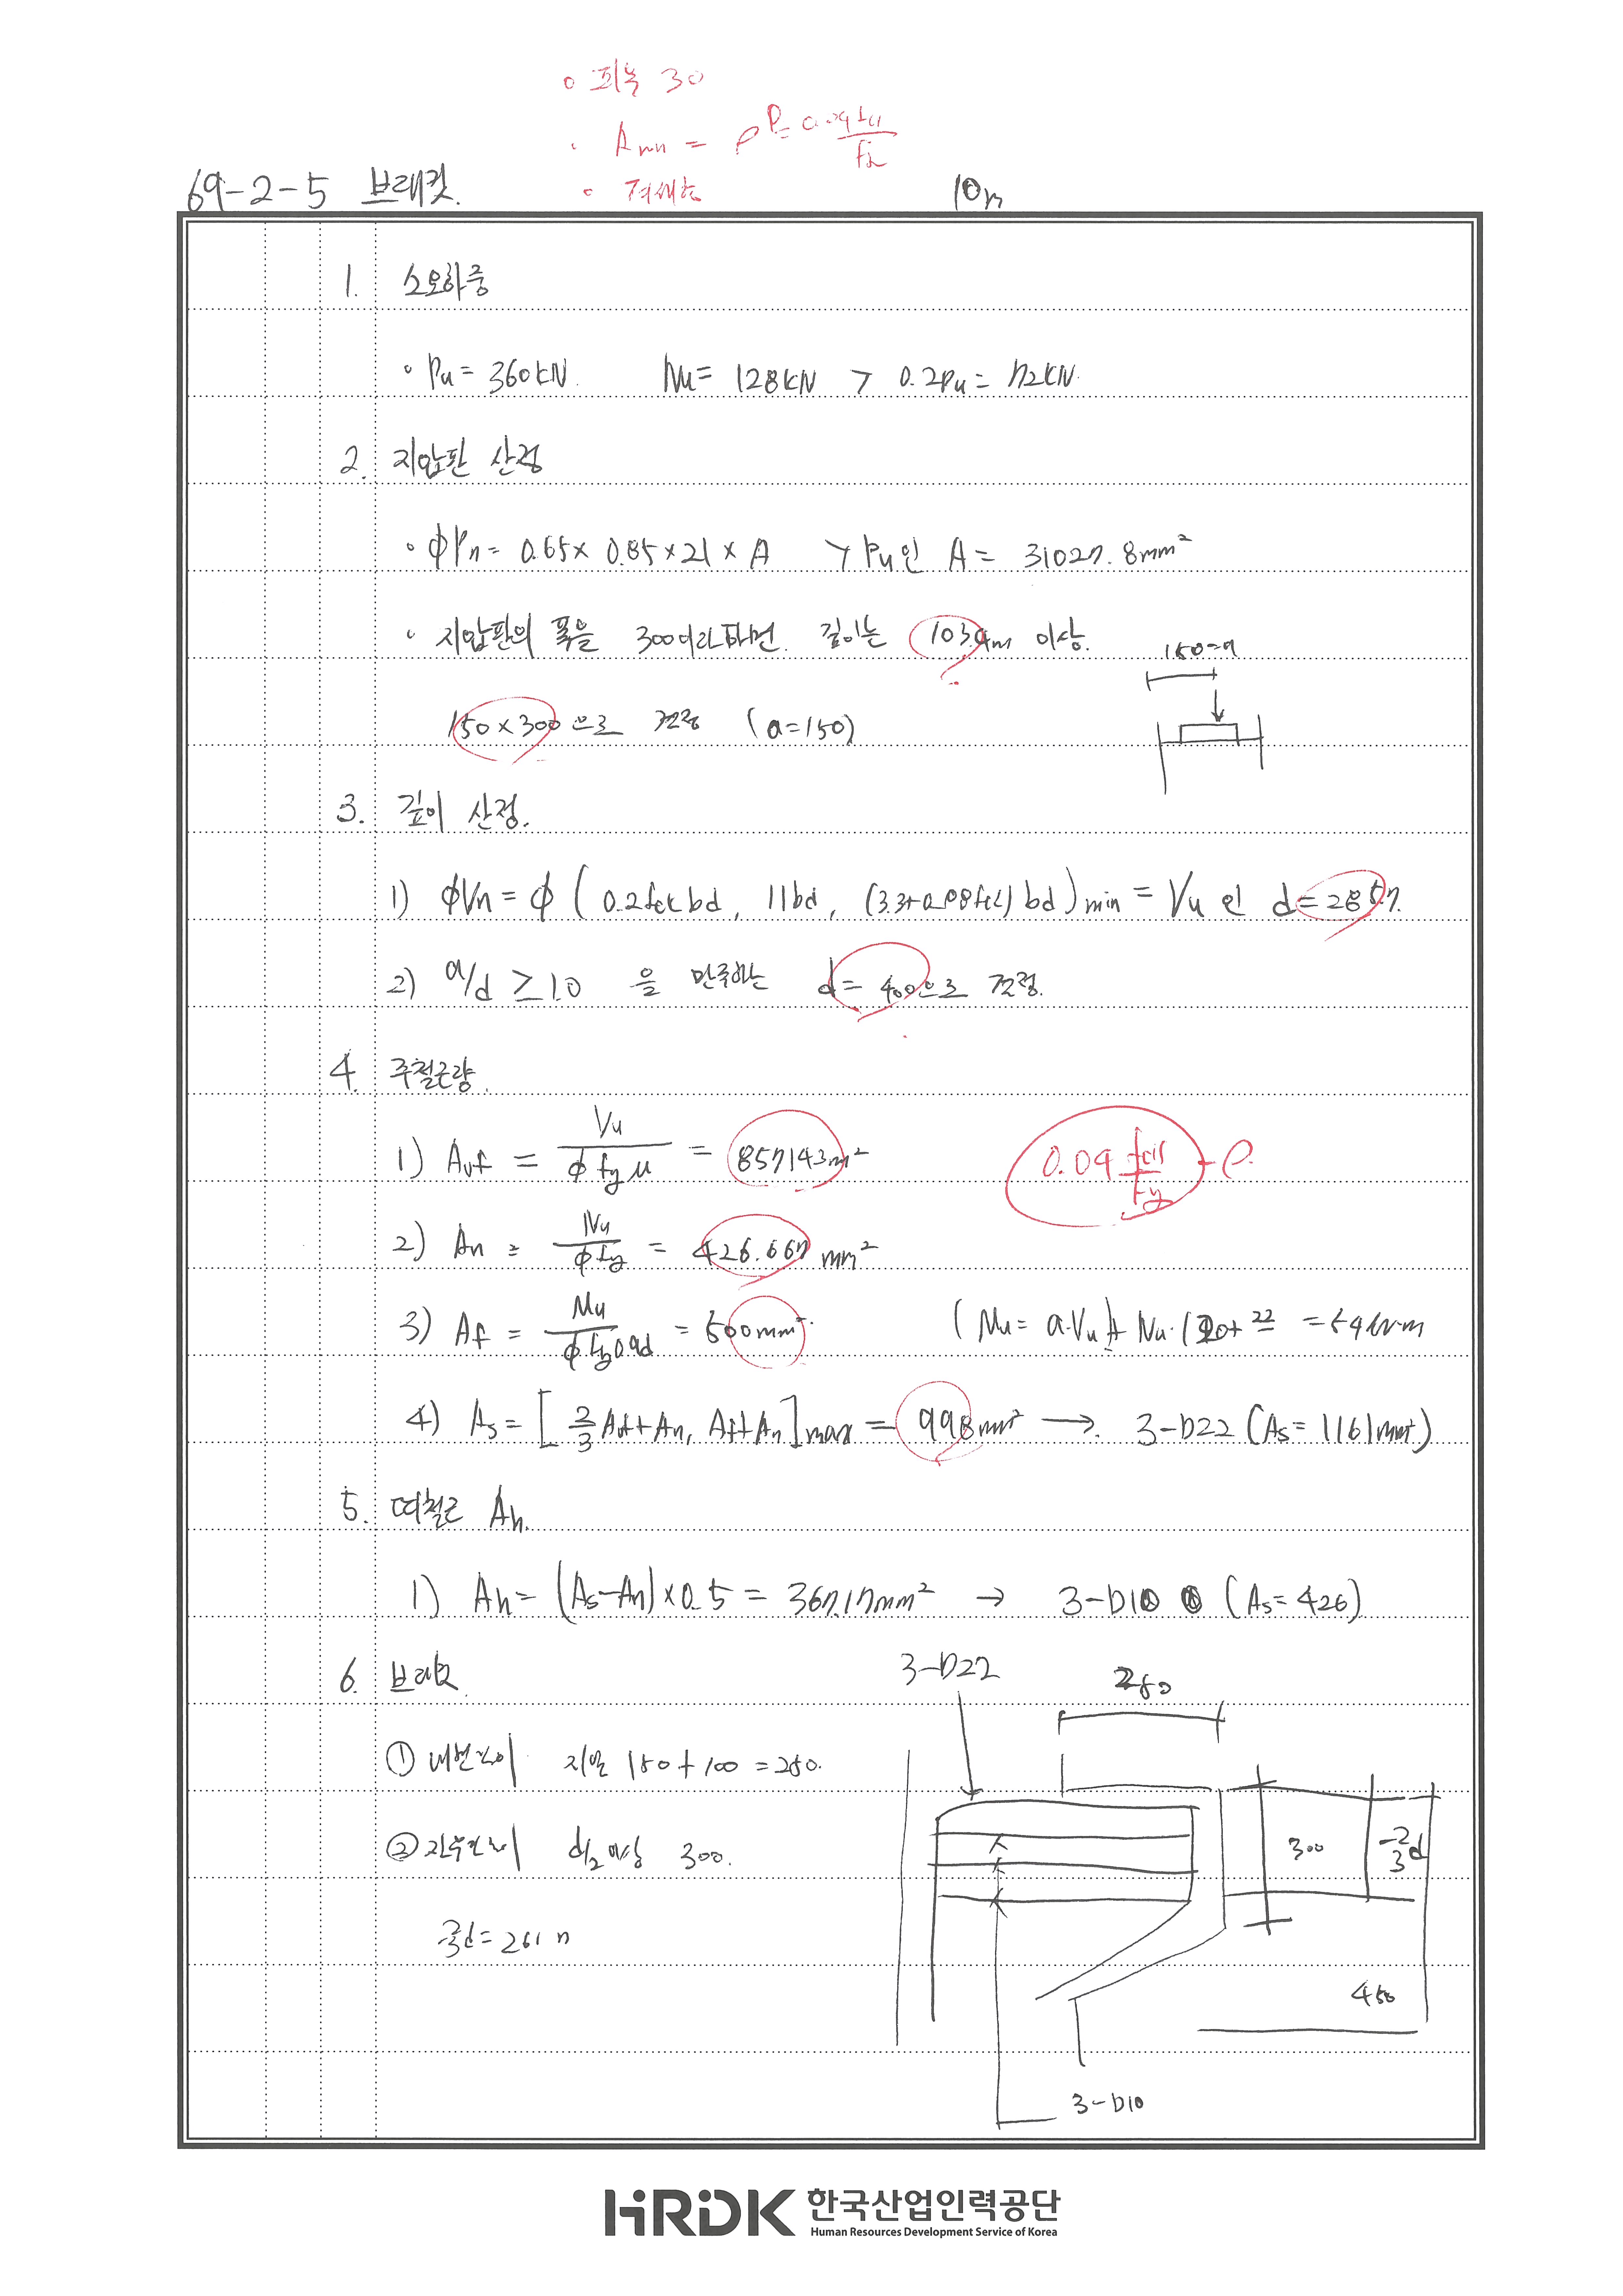 • 피복 30
• Amin = ρ ρ= 0.04 fck/fy
•
69-2-5 브래킷. 10n
1. 소요하중
• Pu = 360kN. Nu = 128kN > 0.2Pu = 72kN.
2. 지압판 산정
• ϕPn = 0.65 × 0.85 × 21 × A > Pu인 A = 31027.8mm²
• 지압판의 폭을 300이라하면. 깊이는 103.4m 이상.
150=a
150×300으로 결정 (a=150)
3. 깊이 산정.
1) ϕVn = ϕ ( 0.2fck bd, 11bd, (3.3+0.08fck) bd )min = Vu 인 d=285.7.
2) a/d ≥ 1.0 을 만족하는 d = 400으로 결정.
4. 주철근량.
1) Avf = Vu / ϕ fy μ = 857.143m² 0.04 fck/fy - ρ.
2) An = Nu / ϕfy = 426.667 mm²
3) Af = Mu / ϕfy0.9d = 500mm² (Mu = a·Vu + Nu·(20+ 22/2 = 54kN·m
4) As = [ 2/3 Avf+An, Af+An ]max = 998mm² → 3-D22 (As = 1161mm²)
5. 띠철근 Ah.
1) Ah = (As-An)×0.5 = 367.17mm² → 3-D10 (As=426)
6. 브래킷 3-D22 250
① 내민길이 지압 150+100 = 250.
② 단부길이 d/2 이상 300. 300 2/3 d
2/3 d = 261 n
450
3-D10
HRDK 한국산업인력공단
Human Resources Development Service of Korea